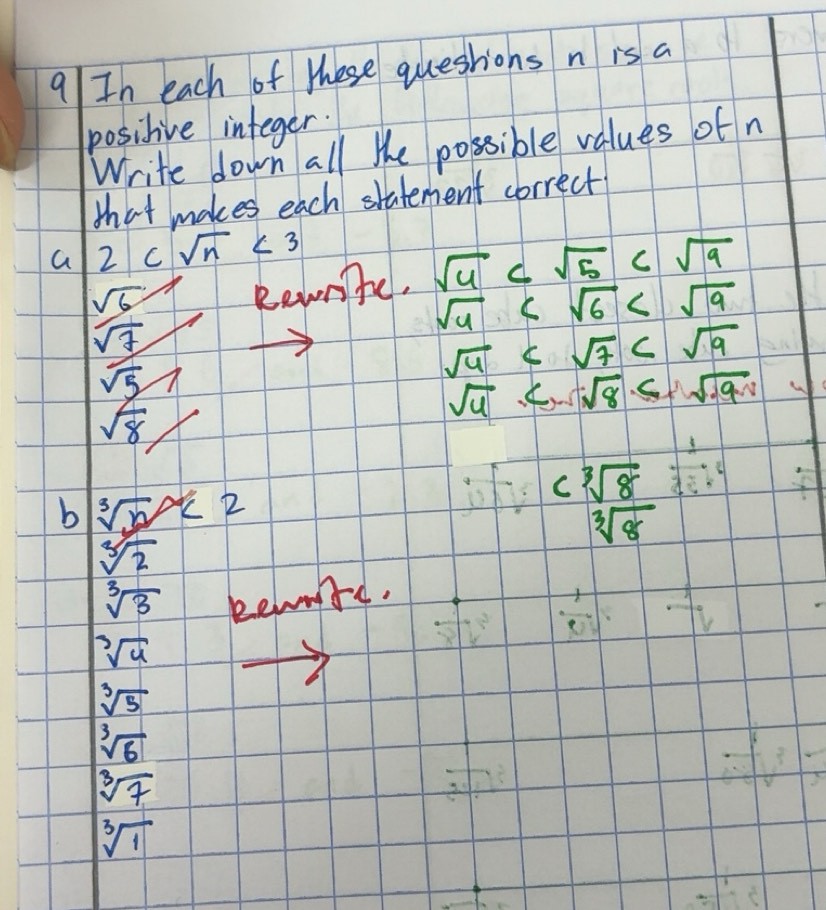 9 In each of these questions n is a
positive integer.
Write down all the possible values of n
that makes each statement correct.
a 2 < √n < 3
√6
√7
√5
√8
Rewrite.
→
√4 < √5 < √9
√4 < √6 < √9
√4 < √7 < √9
√4 < √8 < √9
b ∛n < 2
∛2
∛3
∛4
∛5
∛6
∛7
∛1
Rewrite.
→
< ∛8
∛8